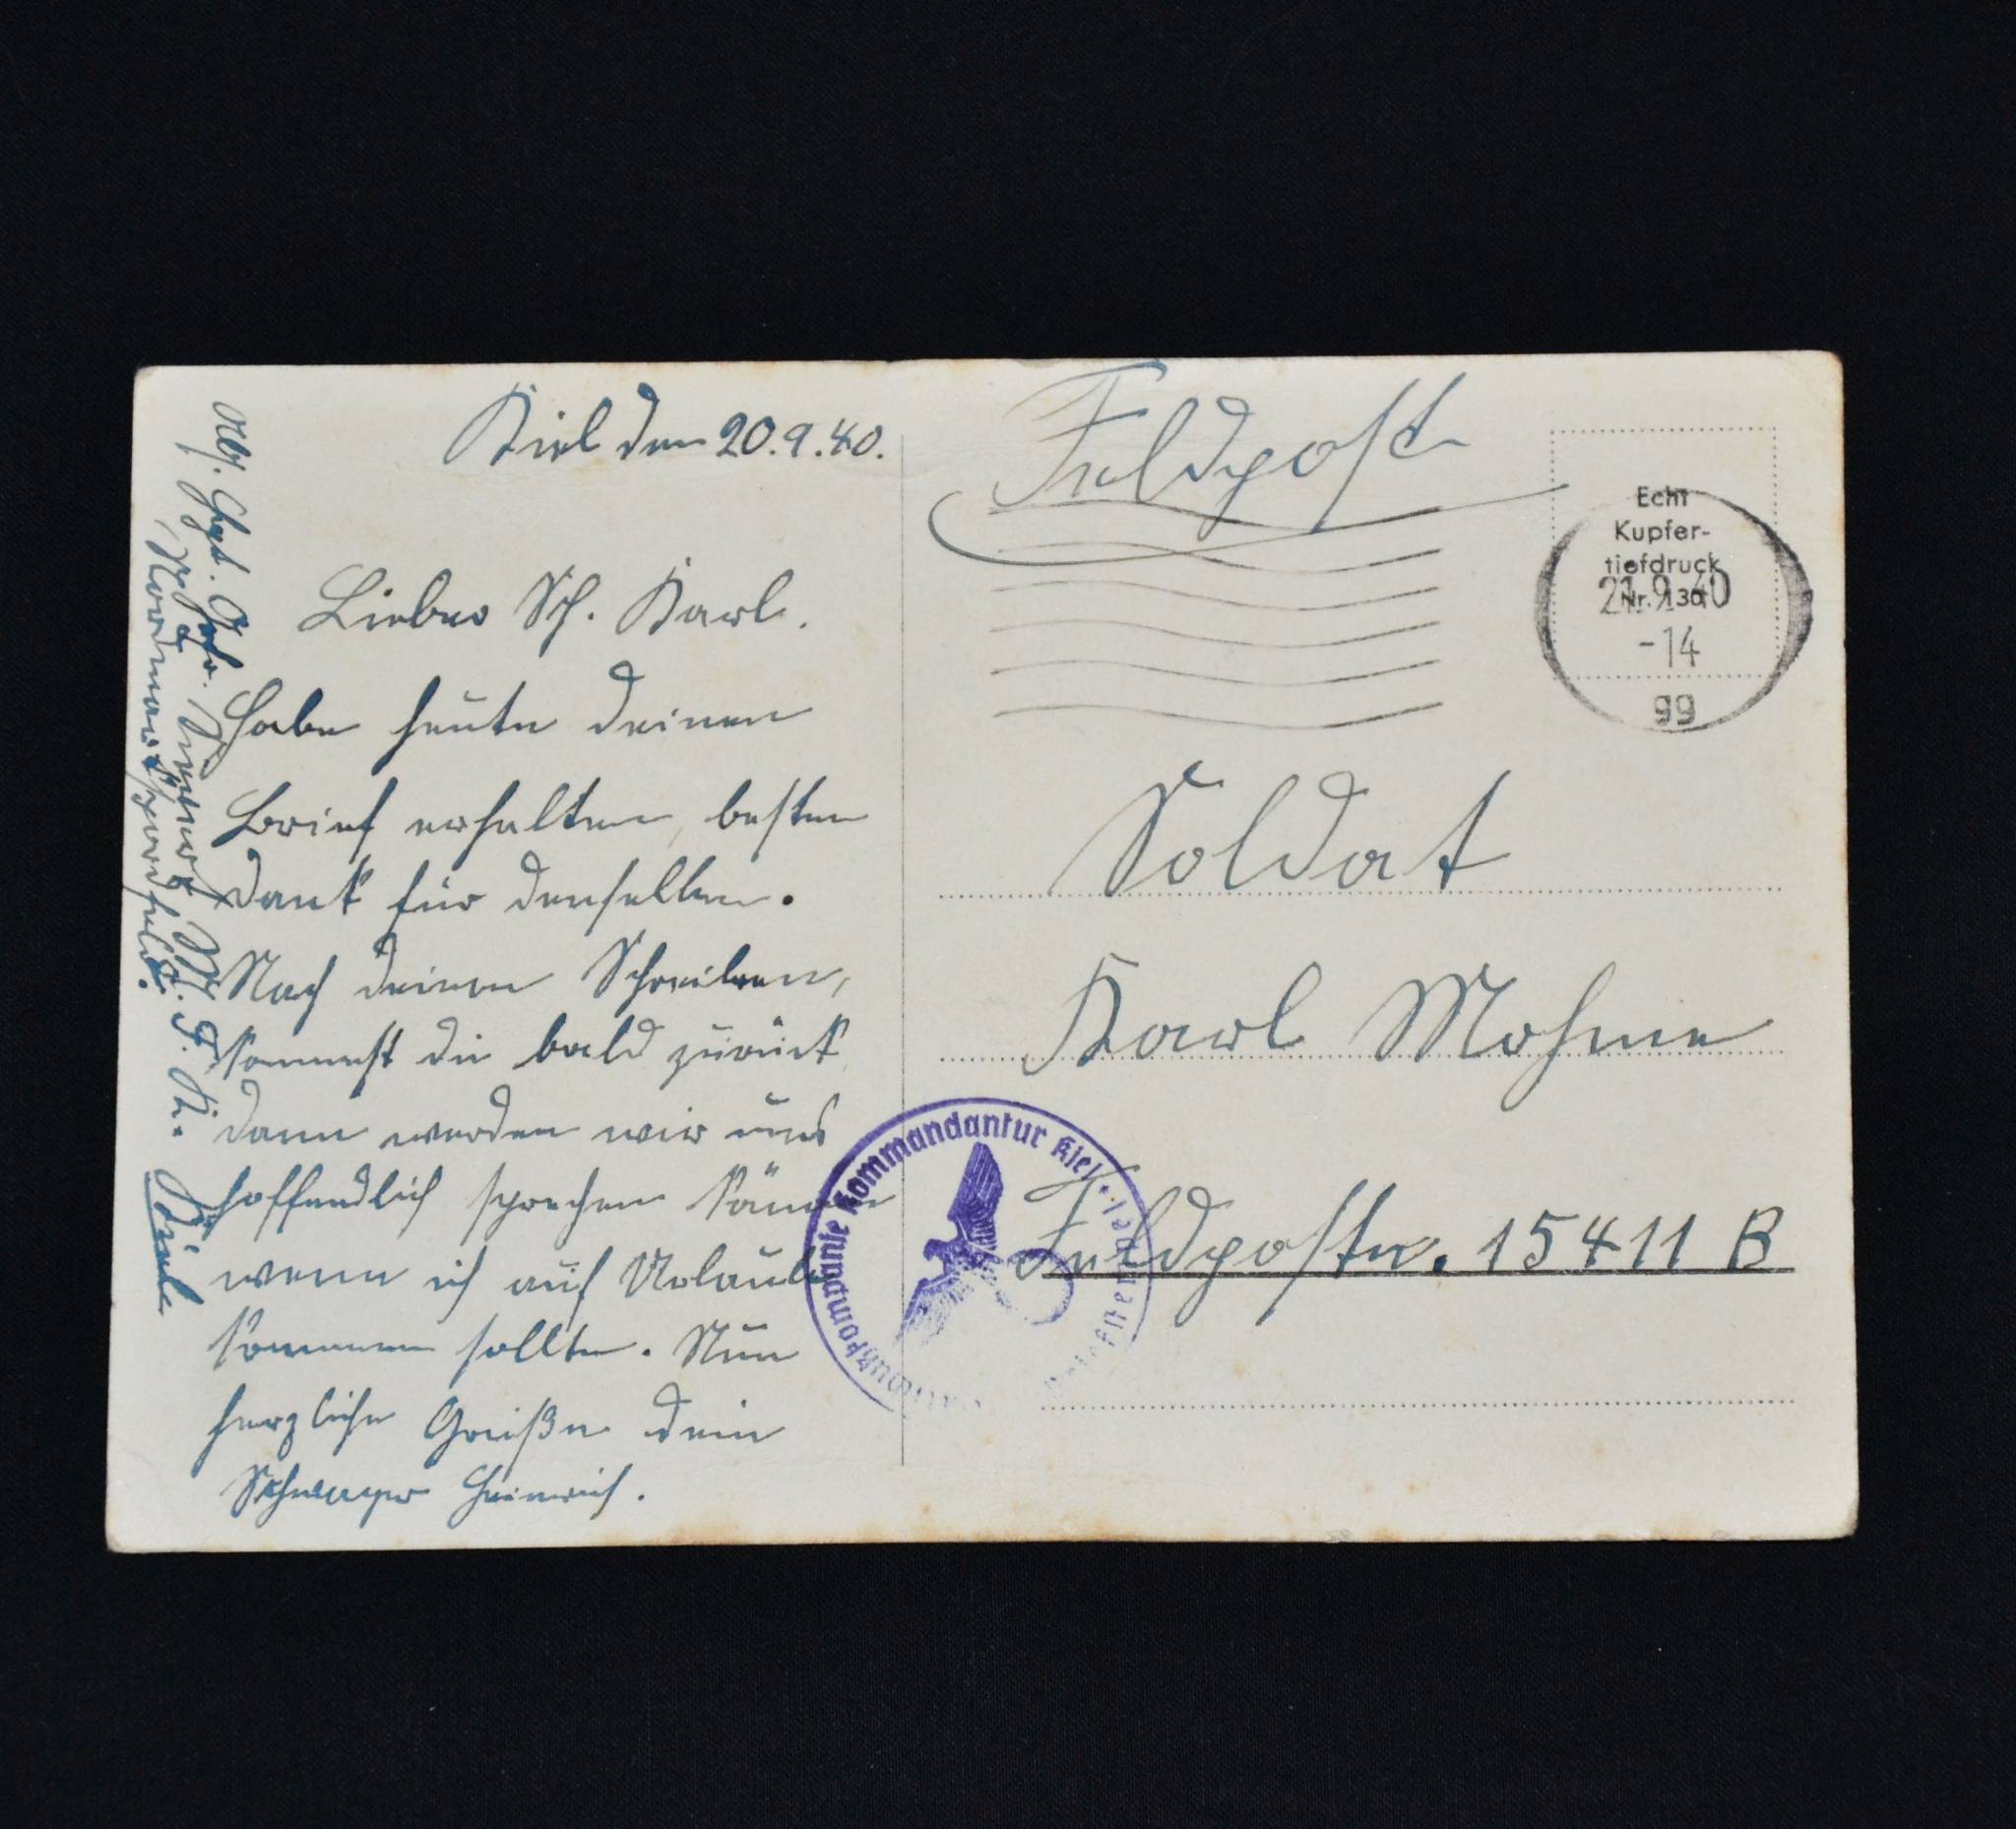 Kiel den 20.9.40.
Lieber Sch. Karl.
Habe heute deinen
Brief erhalten, besten
Dank für denselben.
Nach deinem Schreiben,
kommst du bald zurück
dann werden wir uns
hoffendlich sprechen können
wenn ich auf Urlaub
kommen sollte. Nun
herzliche Grüße dein
Schwager Heinrich.
Abs.
W. K. K. Kiel
Nordmarksportfeld.
Feldpost
Echt
Kupfer-
tiefdruck
Nr. 130
21.9.40
-14
gg
Soldat
Karl Mohme
Feldpostn. 15411 B
Wachkompanie Kommandantur Kiel
Briefstempel